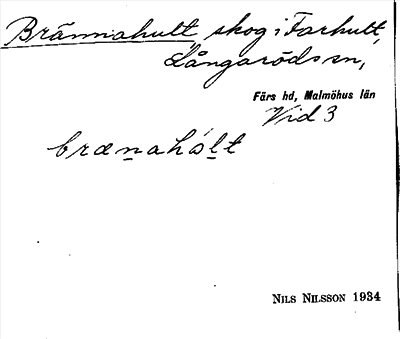 Brännahult, skog i Farhult,
Långaröds sn,
Färs hd, Malmöhus län
Vid 3
brænahólt
NILS NILSSON 1934